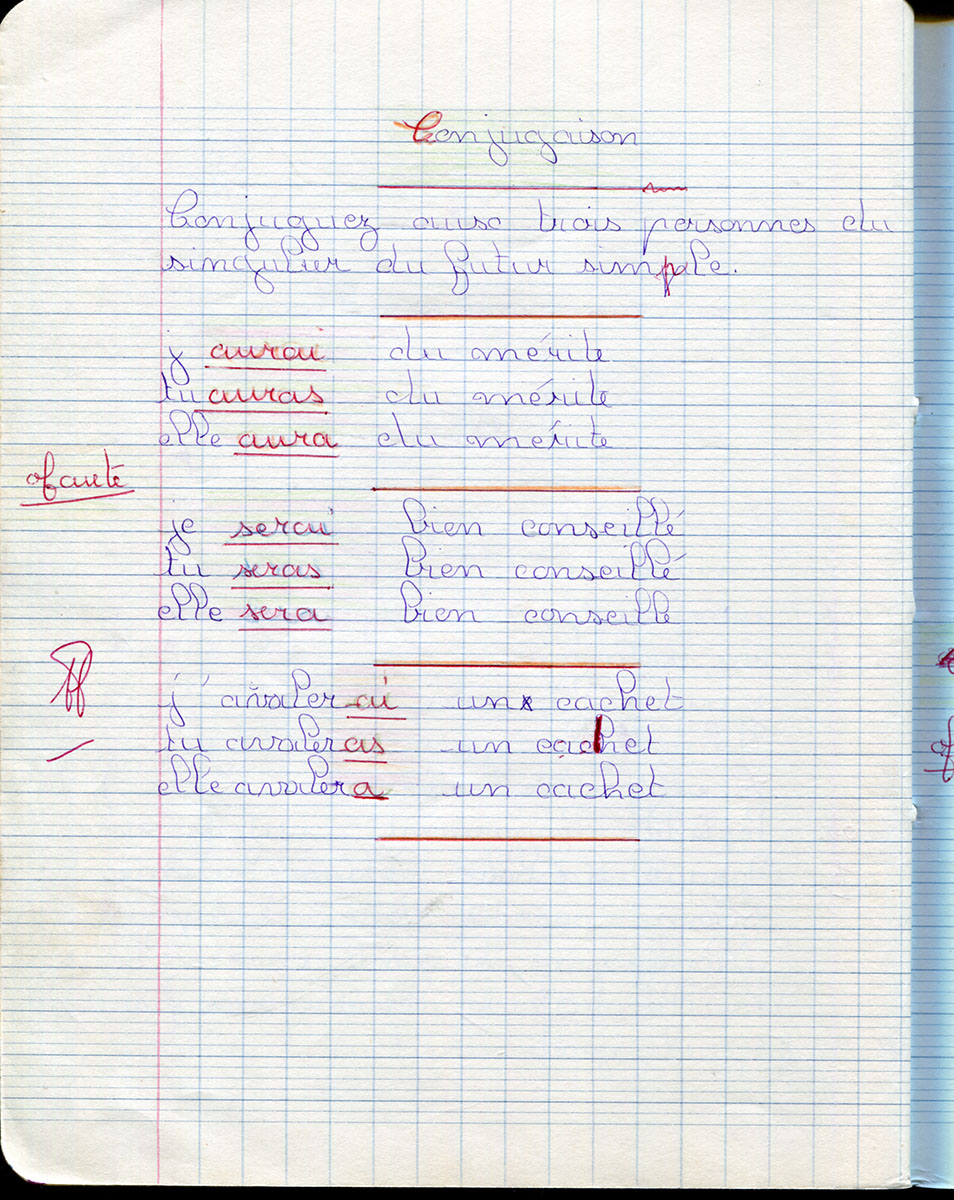 Conjugaison
Conjuguez aux trois personnes du
singulier du futur simple.
j aurai du mérite
tu auras du mérite
elle aura du mérite
0 faute
je serai bien conseillé
tu seras bien conseillé
elle sera bien conseillé
j'avalerai un cachet
tu avaleras un cachet
elle avalera un cachet